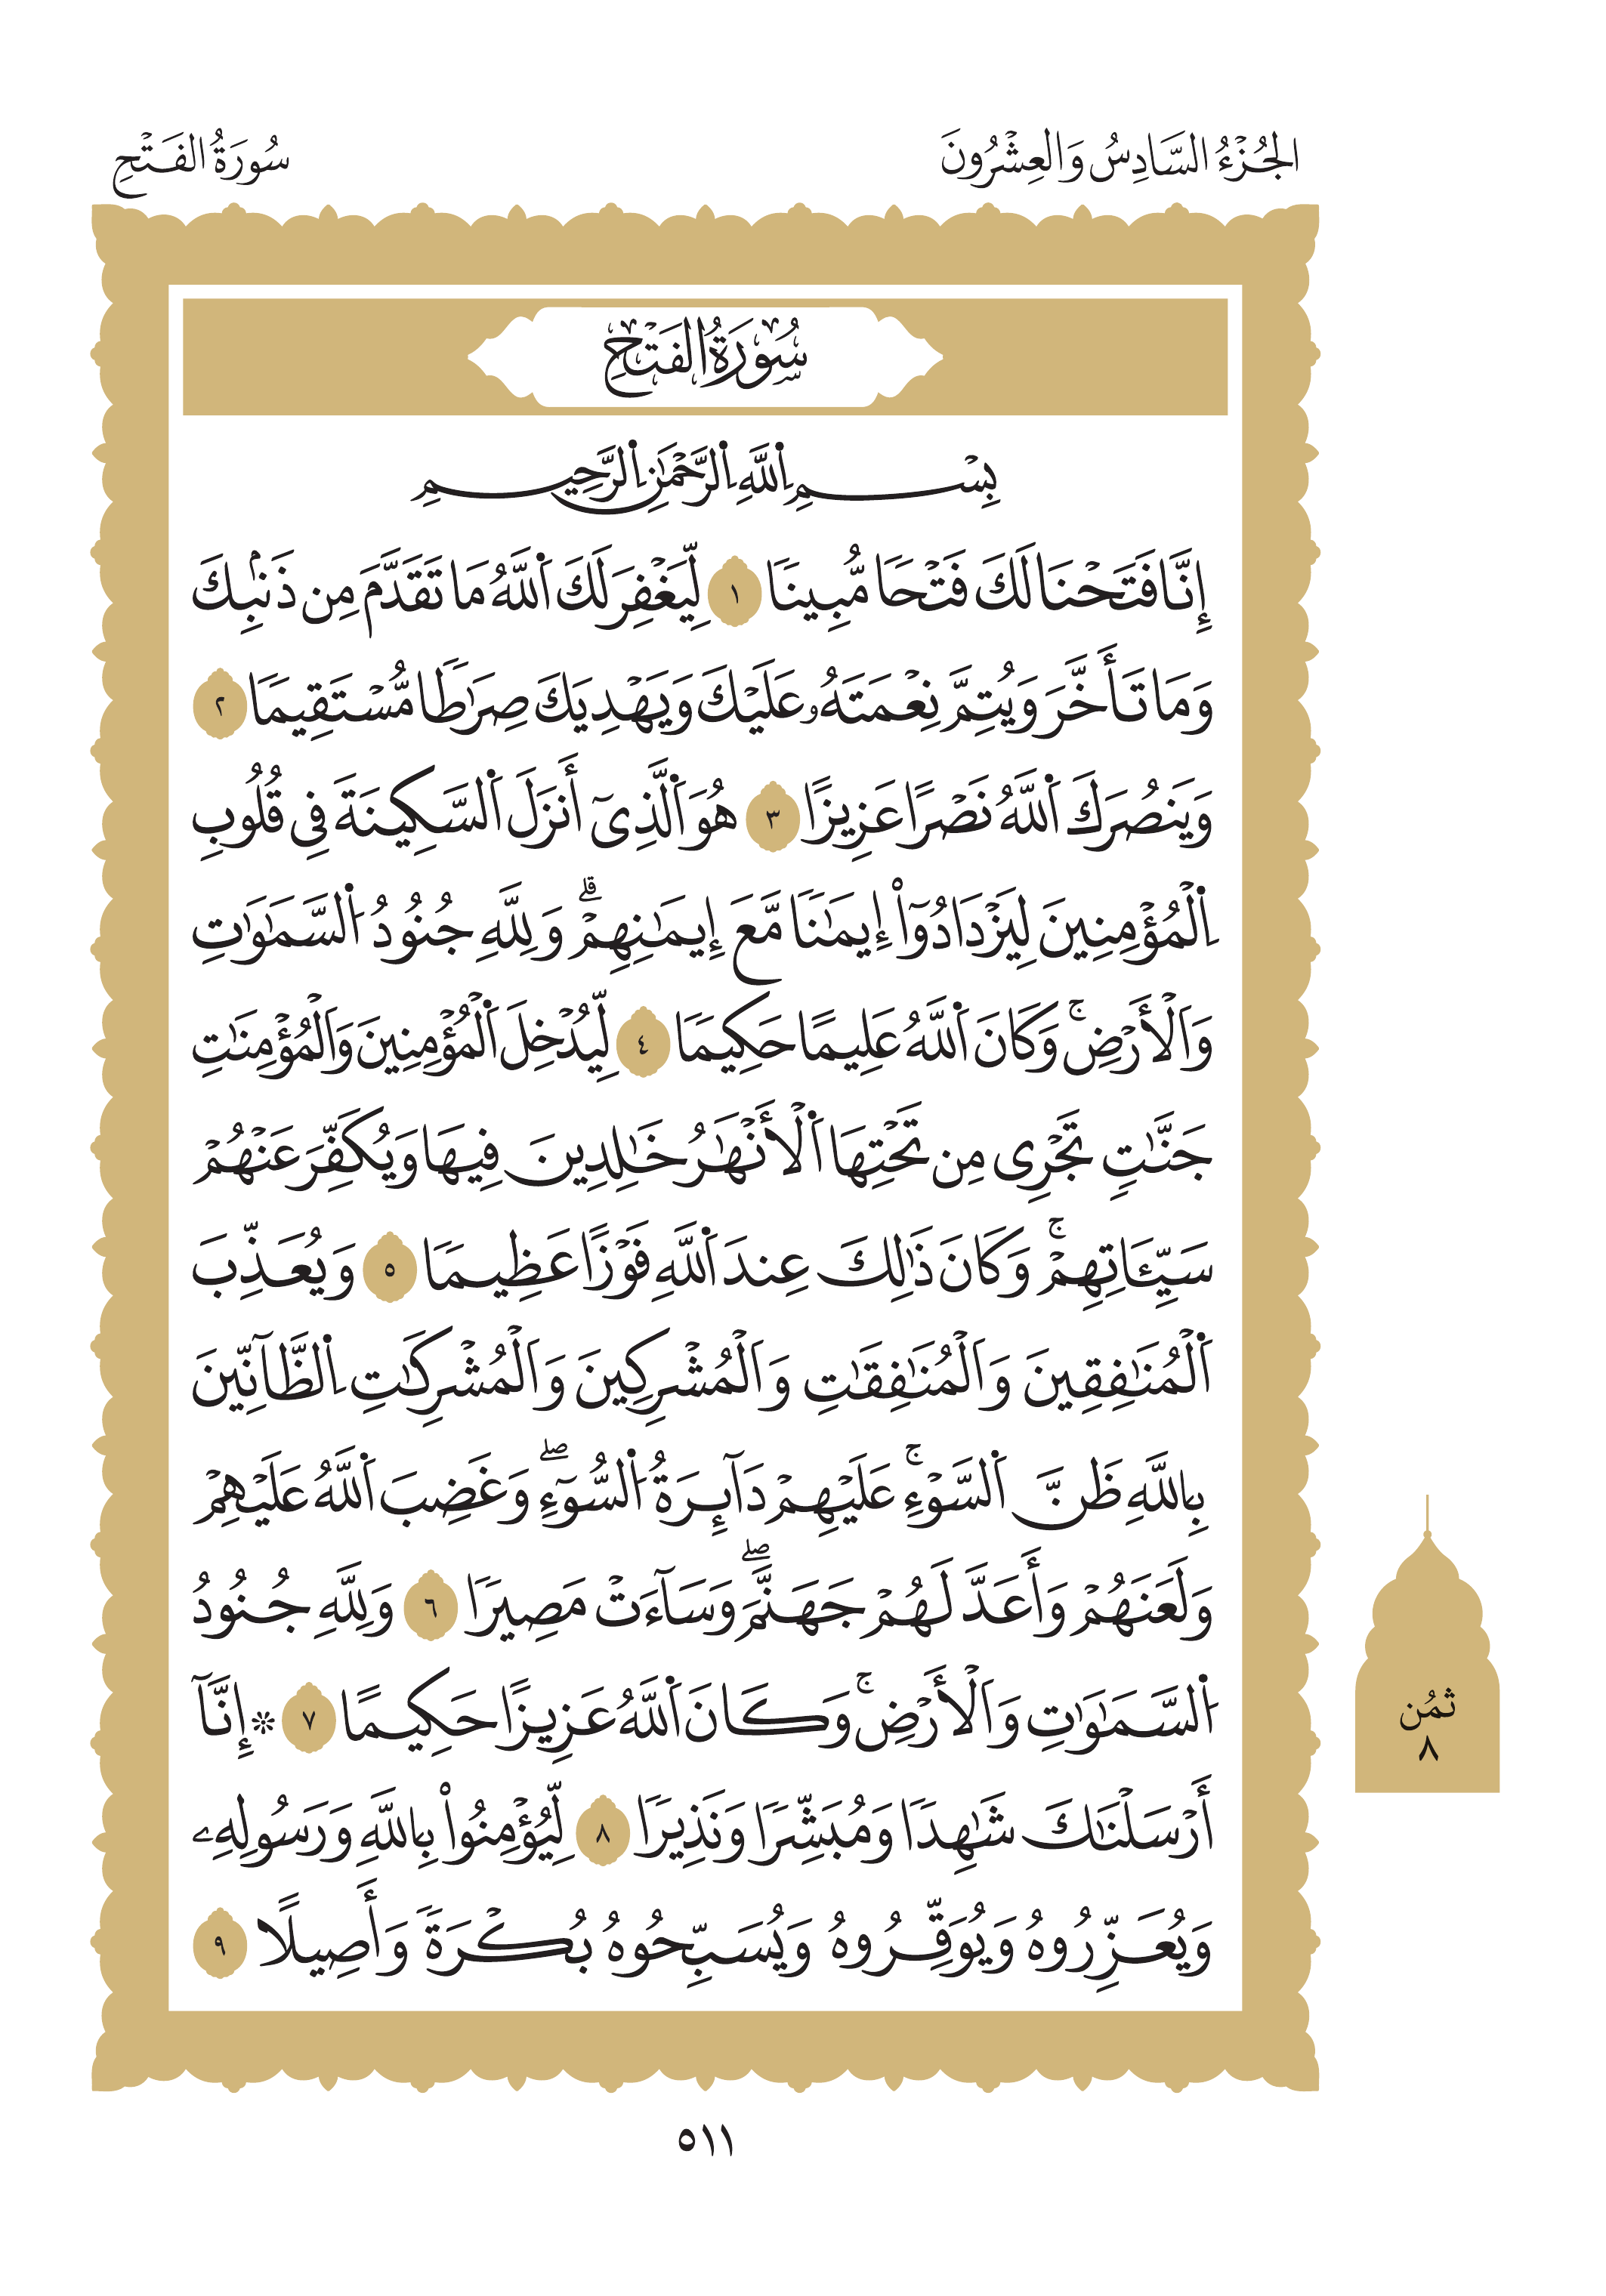 الجُزْءُ السَّادِسُ وَالعِشْرُونَ
سُورَةُ الفَتْحِ
سُورَةُ الفَتْحِ
بِسْمِ اِ۬للَّهِ اِ۬لرَّحْمَٰنِ اِ۬لرَّحِيمِ
إِنَّا فَتَحْنَا لَكَ فَتْحٗا مُّبِينٗا ١ لِّيَغْفِرَ لَكَ اَ۬للَّهُ مَا تَقَدَّمَ مِن ذَنۢبِكَ
وَمَا تَأَخَّرَ وَيُتِمَّ نِعْمَتَهُۥ عَلَيْكَ وَيَهْدِيَكَ صِرَٰطٗا مُّسْتَقِيمٗا ٢
وَيَنصُرَكَ اَ۬للَّهُ نَصْرًا عَزِيزًا ٣ هُوَ اَ۬لَّذِيٓ أَنزَلَ اَ۬لسَّكِينَةَ فِي قُلُوبِ
اِ۬لْمُؤْمِنِينَ لِيَزْدَادُوٓاْ إِيمَٰنٗا مَّعَ إِيمَٰنِهِمْۗ وَلِلَّهِ جُنُودُ اُ۬لسَّمَٰوَٰتِ
وَاَ۬لْأَرْضِۚ وَكَانَ اَ۬للَّهُ عَلِيمًا حَكِيمٗا ٤ لِّيُدْخِلَ اَ۬لْمُؤْمِنِينَ وَاَ۬لْمُؤْمِنَٰتِ
جَنَّٰتٖ تَجْرِي مِن تَحْتِهَا اَ۬لْأَنْهَٰرُ خَٰلِدِينَ فِيهَا وَيُكَفِّرَ عَنْهُمْ
سَيِّـَٔاتِهِمْۚ وَكَانَ ذَٰلِكَ عِندَ اَ۬للَّهِ فَوْزًا عَظِيمٗا ٥ وَيُعَذِّبَ
اَ۬لْمُنَٰفِقِينَ وَاَ۬لْمُنَٰفِقَٰتِ وَاَ۬لْمُشْرِكِينَ وَاَ۬لْمُشْرِكَٰتِ اِ۬لظَّآنِّينَ
بِاللَّهِ ظَنَّ اَ۬لسَّوْءِۚ عَلَيْهِمْ دَآئِرَةُ اُ۬لسُّوٓءِۖ وَغَضِبَ اَ۬للَّهُ عَلَيْهِمْ
وَلَعَنَهُمْ وَأَعَدَّ لَهُمْ جَهَنَّمَۖ وَسَآءَتْ مَصِيرٗا ٦ وَلِلَّهِ جُنُودُ
اُ۬لسَّمَٰوَٰتِ وَاَ۬لْأَرْضِۚ وَكَانَ اَ۬للَّهُ عَزِيزًا حَكِيمًا ٧ ۞ إِنَّآ
أَرْسَلْنَٰكَ شَٰهِدٗا وَمُبَشِّرٗا وَنَذِيرٗا ٨ لِّيُؤْمِنُواْ بِاللَّهِ وَرَسُولِهِۦ
وَيُعَزِّرُوهُ وَيُوَقِّرُوهُ وَيُسَبِّحُوهُ بُكْرَةٗ وَأَصِيلًا ٩
ثُمُن
٨
٥١١